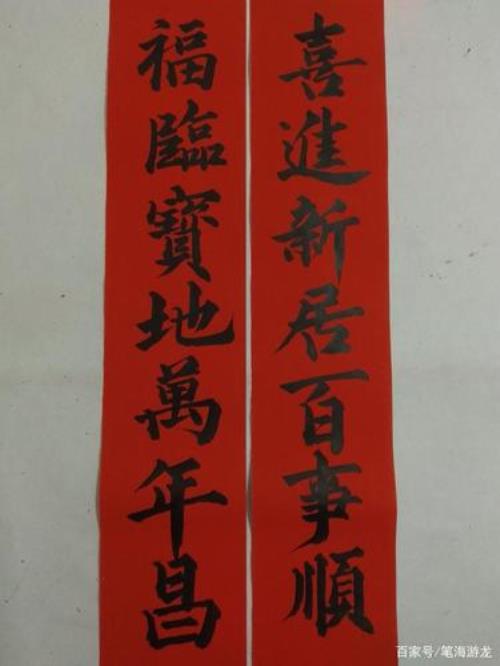 喜進新居百事順
福臨寳地萬年昌
百家号/笔海游龙